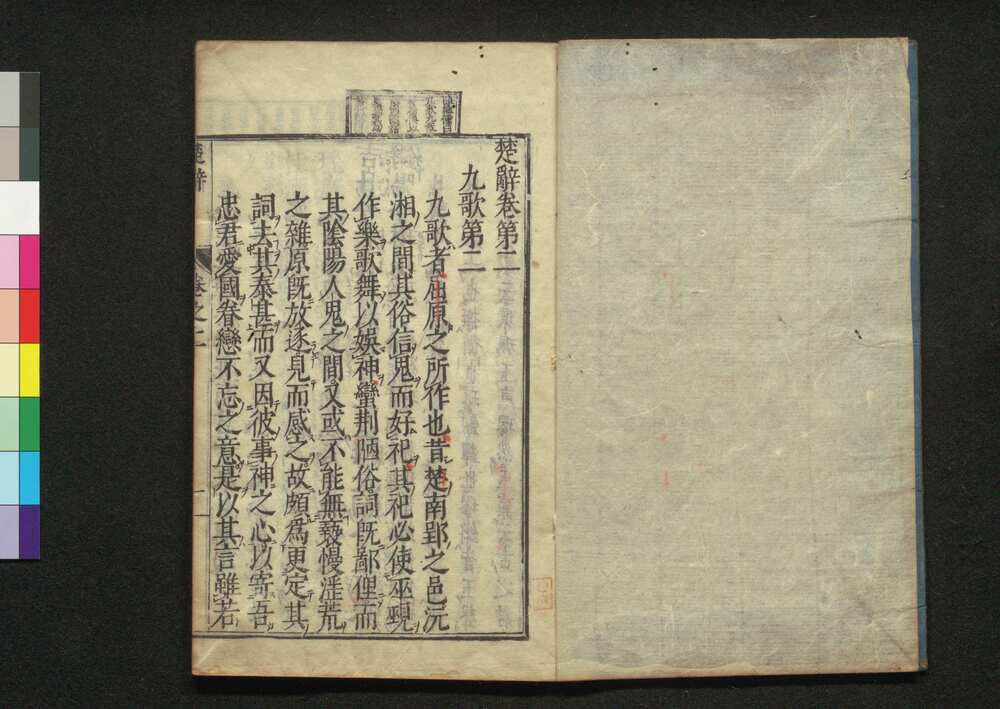 楚辭卷第二
九歌第二
九歌者屈原之所作也昔楚南郢之邑沅
湘之間其俗信鬼而好祀其祀必使巫覡
作樂歌舞以娛神蠻荆陋俗詞既鄙俚而
其陰陽人鬼之間又或不能無䙝慢淫荒
之雜原既放逐見而感之故頗爲更定其
詞去其泰甚而又因彼事神之心以寄吾
忠君愛國眷戀不忘之意是以其言雖若
楚辭
卷之二